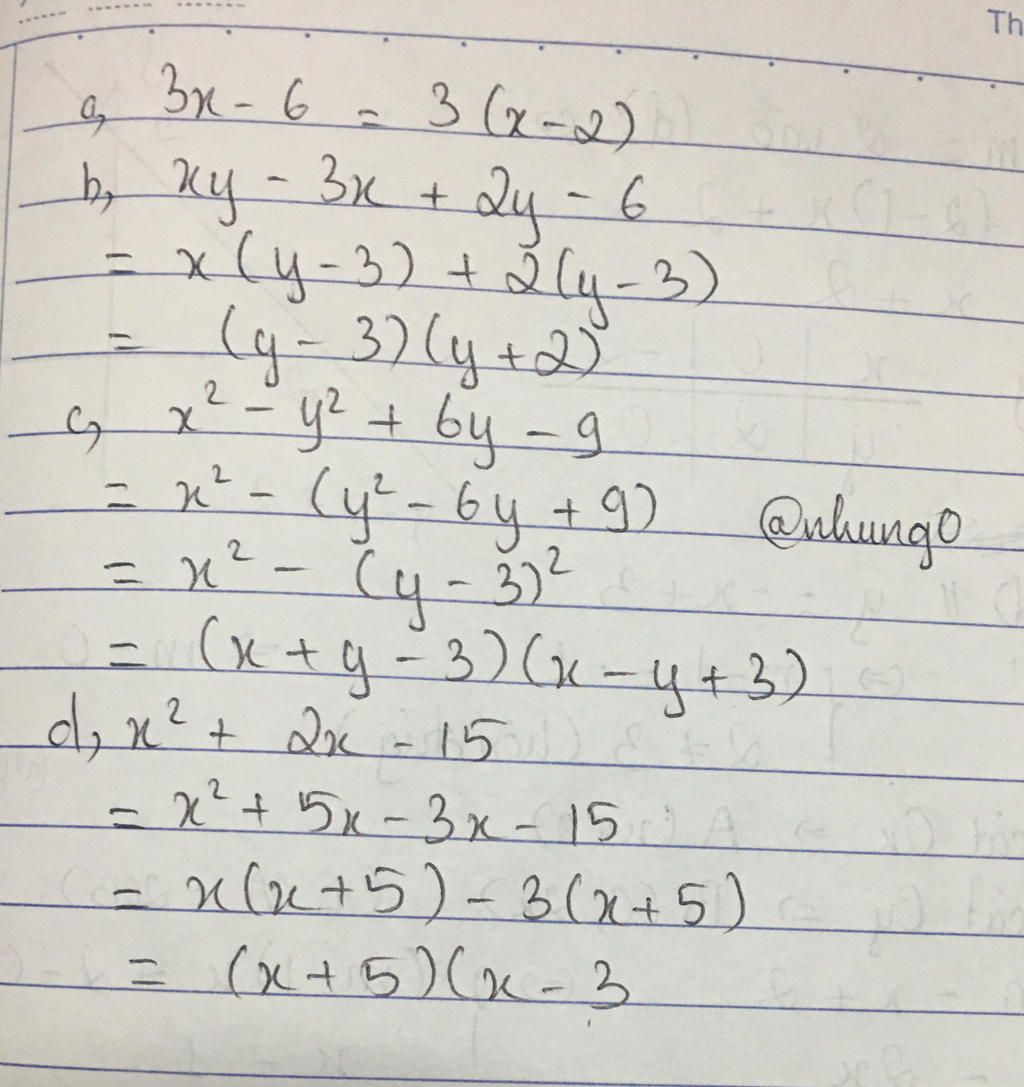 Th
a, 3x - 6 = 3 (x - 2)
b, xy - 3x + 2y - 6
= x (y - 3) + 2 (y - 3)
= (y - 3) (y + 2)
c, x² - y² + 6y - 9
= x² - (y² - 6y + 9)
@nhung0
= x² - (y - 3)²
= (x + y - 3) (x - y + 3)
d, x² + 2x - 15
= x² + 5x - 3x - 15
= x (x + 5) - 3 (x + 5)
= (x + 5) (x - 3